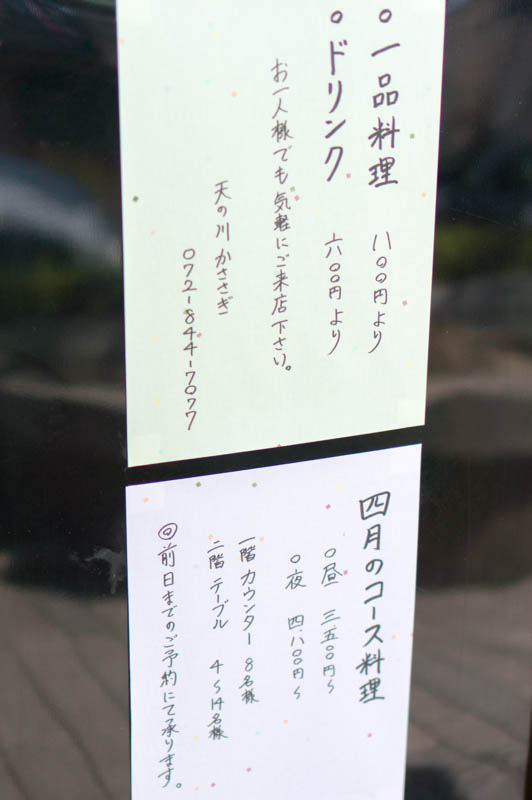 ○一品料理 八〇〇円より
○ドリンク 六〇〇円より
お一人様でも気軽にご来店下さい。
天の川かささぎ
072-844-7077
四月のコース料理
○昼 三,五〇〇円~
○夜 四,八〇〇円~
一階カウンター 8名様
二階テーブル 4~14名様
◎前日までのご予約にて承ります。